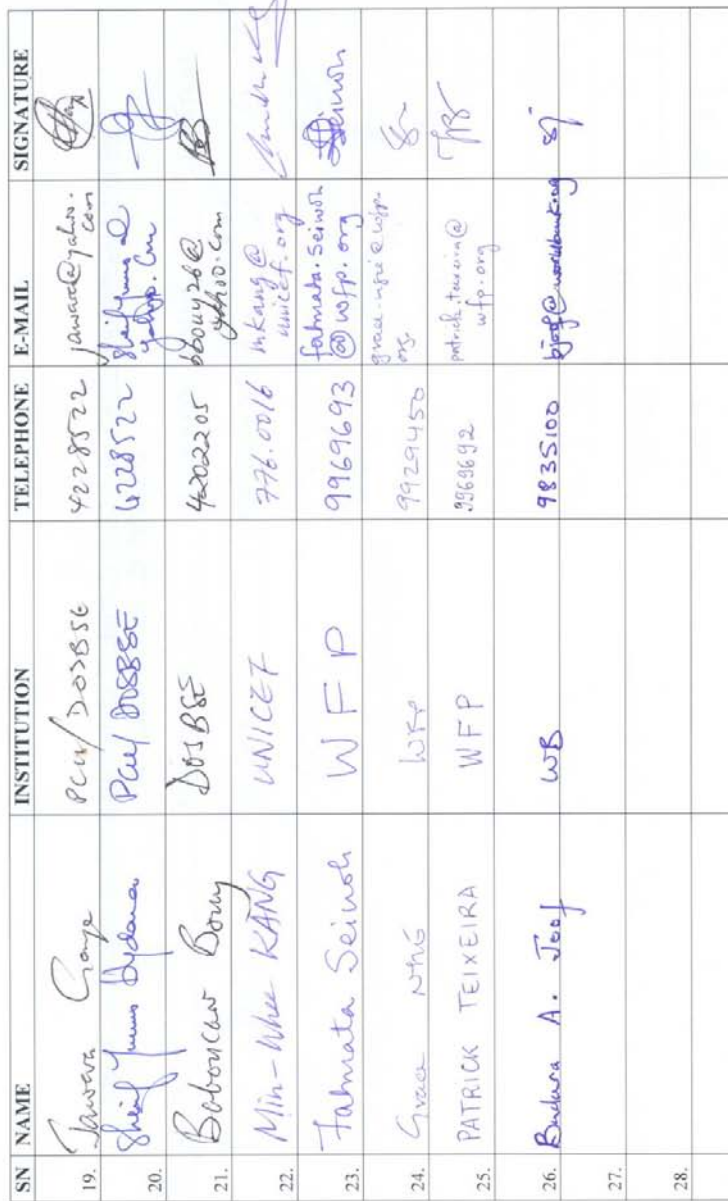 SN NAME INSTITUTION TELEPHONE E-MAIL SIGNATURE
19. Jawara Gaye PCU/DOSBSE 4228522 jawara@yahoo.
com
20. Sherif Yunus Hydara PCU/DOSBSE 4228522
yahoo.com
21. Baboucar Bouy DOSBSE 4202205 bbouy26@
yahoo.com
22. Min-Whee KANG UNICEF 776.0016 mkang@
unicef.org
23. Fatmata Seiwoh WFP 9969693 fatmata.seiwoh
@wfp.org Seiwoh
24. Grace WFP 9929450 @wfp.
org.
25. PATRICK TEIXEIRA WFP 9969692 patrick.teixeira@
wfp.org
26. A. Joof WB 9835100
27.
28.